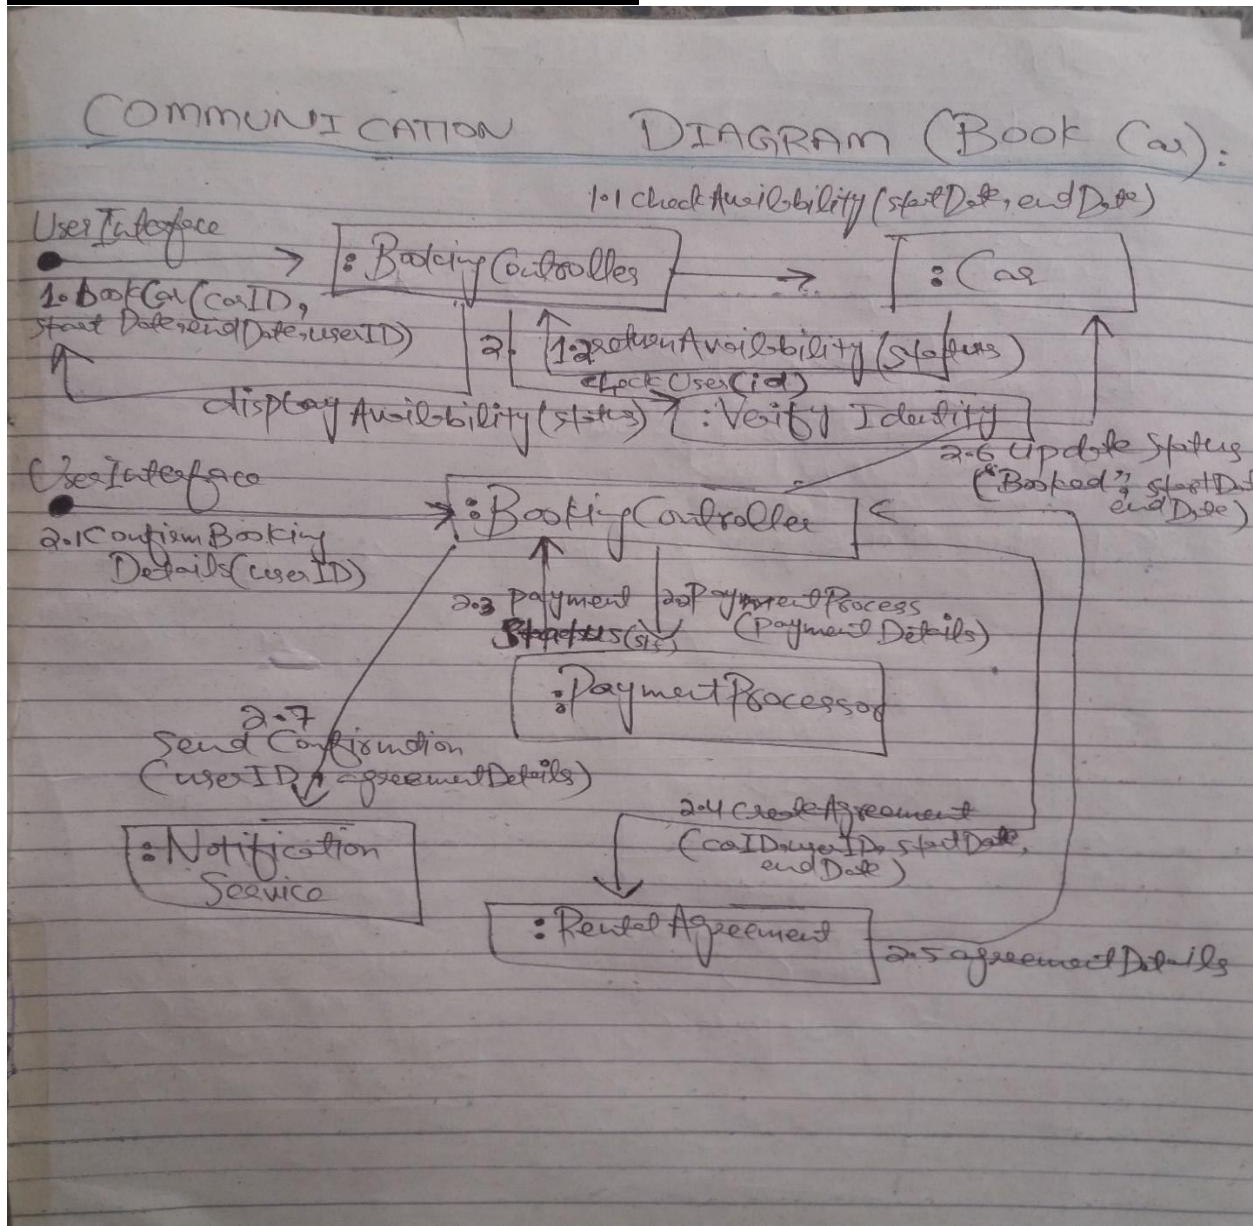 COMMUNICATION DIAGRAM (Book Car):
1.1 checkAvailability(startDate, endDate)
UserInterface
:BookingController
:Car
1. bookCar(carID,
start Date, endDate, userID)
2.
1.2 returnAvailability(status)
checkUser(id)
displayAvailability(status)
:Verify Identity
2.6 Update Status
("Booked", startDat
endDate)
UserInterface
:BookingController
2.1 Confirm Booking
Details(userID)
2.3 payment
Status(
2.2 PaymentProcess
(paymentDetails)
:PaymentProcessor
2.7
Send Confirmation
(userID, agreementDetails)
2.4 createAgreement
(carID, userID, startDate,
endDate)
:Notification
Service
:RentalAgreement
2.5 agreementDetails